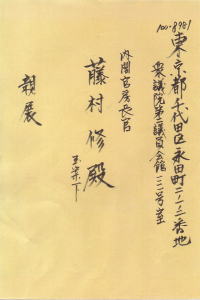 100-8981
東京都千代田区永田町二ー一ー二番地
衆議院第二議員会館 号室
内閣官房長官
藤村修殿
玉案下
親展